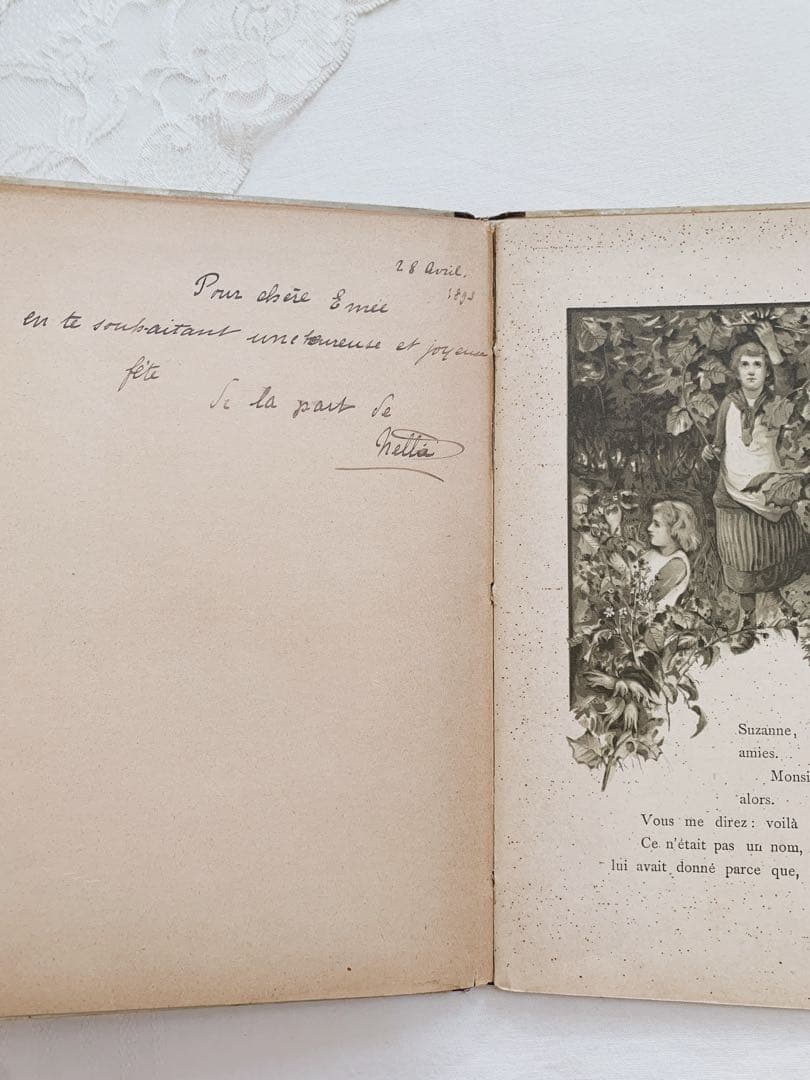 28 Avril.
Pour chère Emée
en te souhaitant une heureuse et joyeuse
fête
de la part de
Nellie
Suzanne,
amies.
Monsi
alors.
Vous me direz: voilà
Ce n'était pas un nom,
lui avait donné parce que,